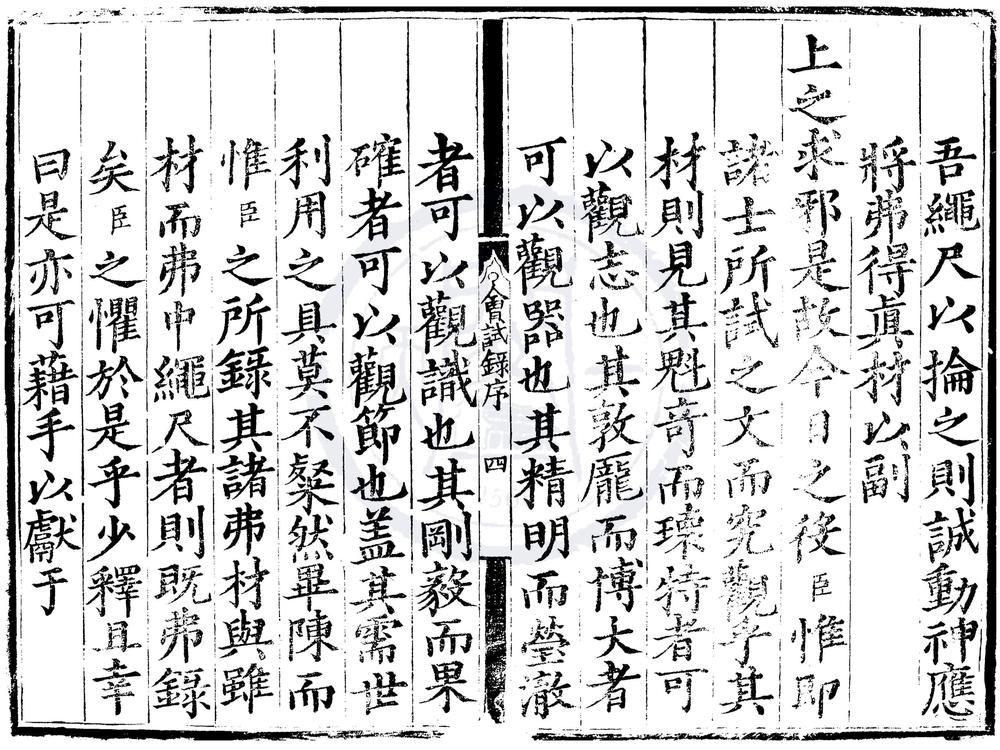 吾繩尺以掄之則誠動神應
將弗得眞材以副
上之求邪是故今日之役臣惟即
諸士所試之文而究觀乎其
材則見其魁竒而瓌特者可
以觀志也其敦厖而博大者
可以觀器也其精明而瑩澈
會試錄序 四
者可以觀識也其剛毅而果
確者可以觀節也盖其需世
利用之具莫不粲然畢陳而
惟臣之所錄其諸弗材與雖
材而弗中繩尺者則既弗錄
矣臣之懼於是乎少釋且幸
曰是亦可藉手以獻于